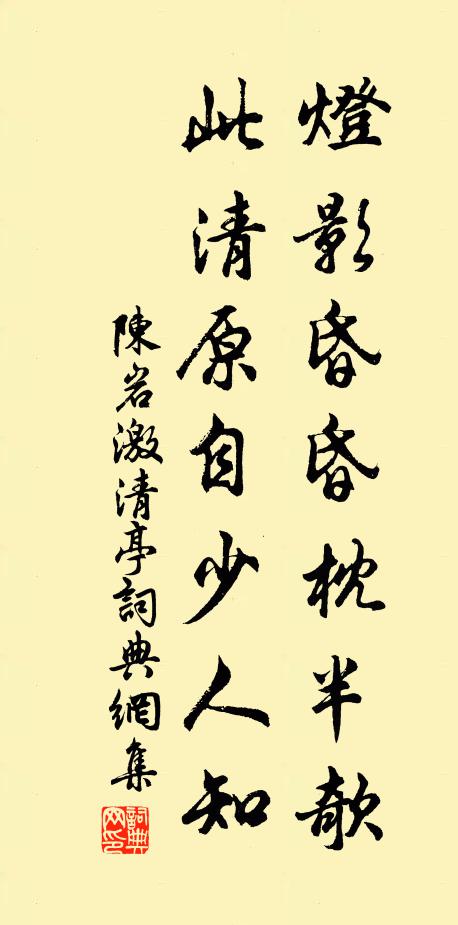 燈影昏昏枕半欹
此清原自少人知
陳岩激清亭詞典網集
詞典网印